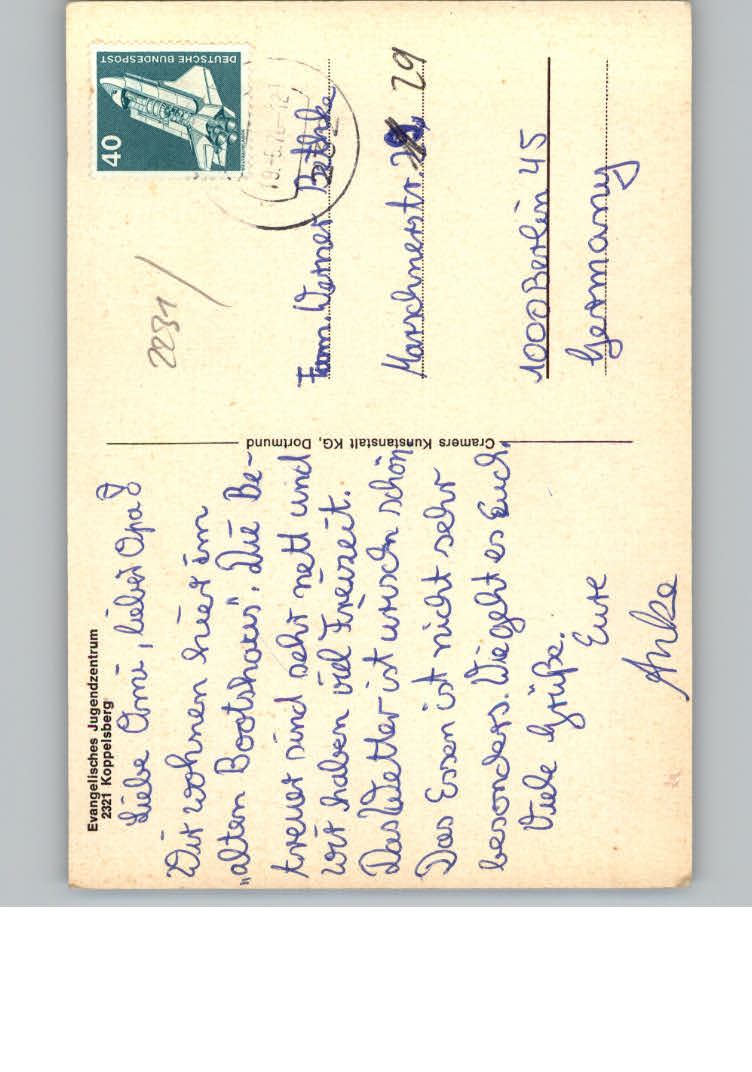 Evangelisches Jugendzentrum
2321 Koppelsberg
Liebe Omi, lieber Opa!
Wir wohnen hier im
„alten Bootshaus". Die Be-
treuer sind sehr nett und
wir haben viel Freizeit.
Das Wetter ist wunschn schön.
Das Essen ist nicht sehr
besonders. Wie geht es Euch.
Viele Grüße.
Eure
Anke
Cramers Kunstanstalt KG, Dortmund
DEUTSCHE BUNDESPOST
40
2231
Fam. Werner Bethke
Marschnerstr. 29
1000 Berlin 45
Germany